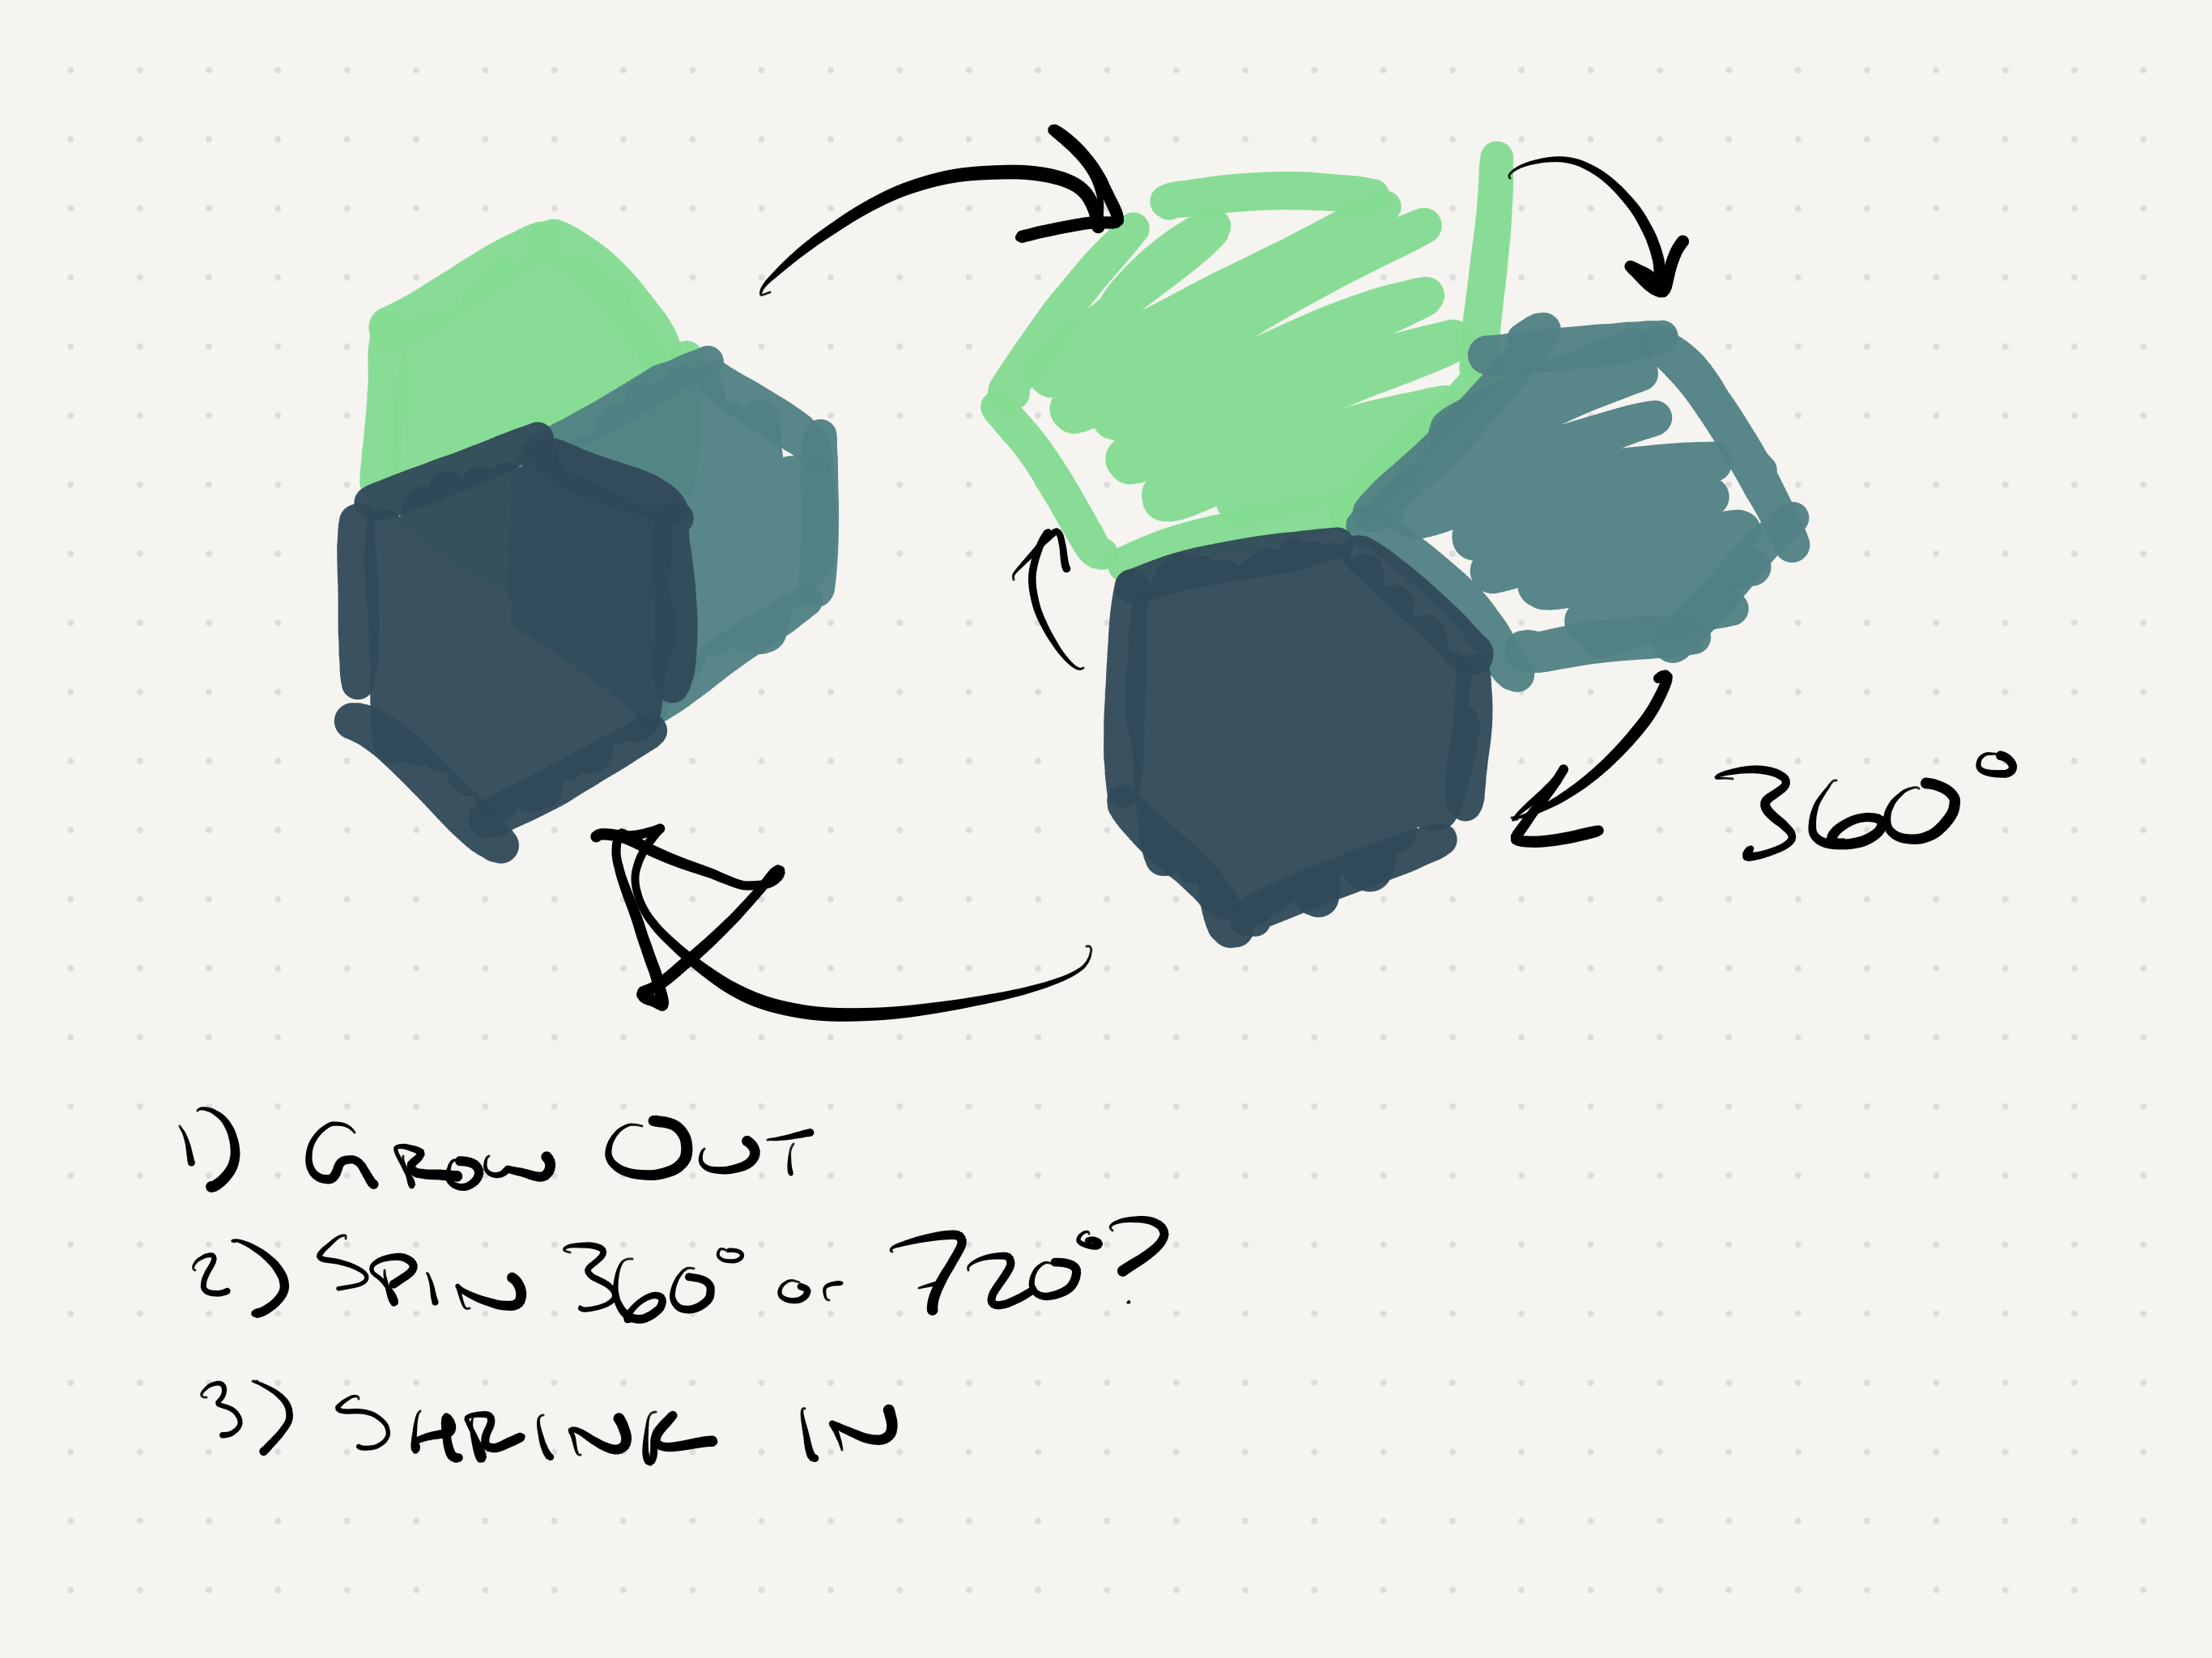 360°
1) GROW OUT
2) SPIN 360° or 720°?
3) SHRINK IN